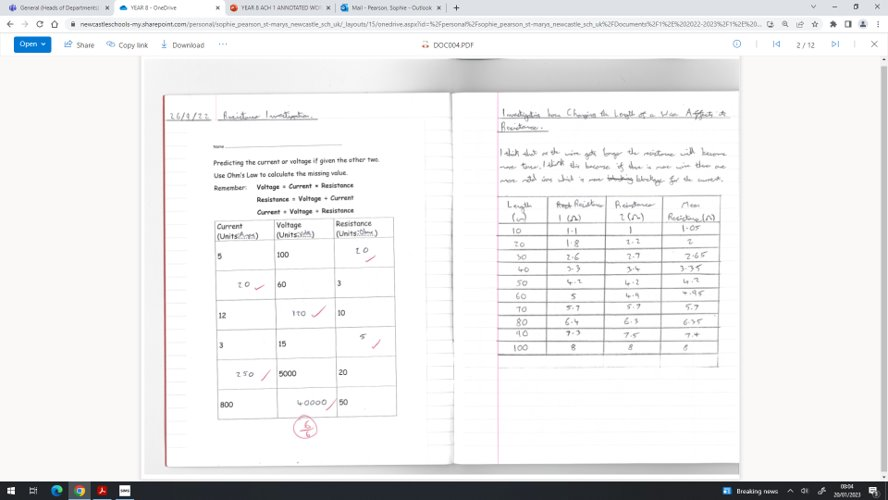 General (Heads of Departments)
YEAR 8 - OneDrive
YEAR 8 ACH 1 ANNOTATED WO
Mail - Pearson, Sophie - Outlook
newcastleschools-my.sharepoint.com/personal/sophie_pearson_st-marys_newcastle_sch_uk/_layouts/15/onedrive.aspx?id=%2Fpersonal%2Fsophie_pearson_st-marys_newcastle_sch_uk%2FDocuments%2F1%2E%202022-2023%2F1%2E%20...
Open
Share
Copy link
Download
DOC004.PDF
2 / 12
26/9/22 Resistance Investigation.
Name
Predicting the current or voltage if given the other two.
Use Ohm's Law to calculate the missing value.
Remember: Voltage = Current × Resistance
Resistance = Voltage ÷ Current
Current = Voltage ÷ Resistance
Current Voltage Resistance
(Units: (Units: (Units:
5 100 20
20 60 3
12 120 10
3 15 5
250 5000 20
800 40000 50
6/6
Investigating how Changing the Length of a Wire Affects its
Resistance.
I think that as the wire gets longer the resistance will become
more . I think this because if there is more wire there are
more metal ions which is more blockage for the current.
Length Resistance Resistance Mean
1 (Ω) 2 (Ω) Resistance (Ω)
10 1.1 1 1.05
20 1.8 2.2 2
30 2.6 2.7 2.65
40 3.3 3.4 3.35
50 4.2 4.2 4.2
60 5 4.9 4.95
70 5.7 5.7 5.7
80 6.4 6.3 6.35
90 7.3 7.5 7.4
100 8 8 8
Breaking news
08:04
20/01/2023